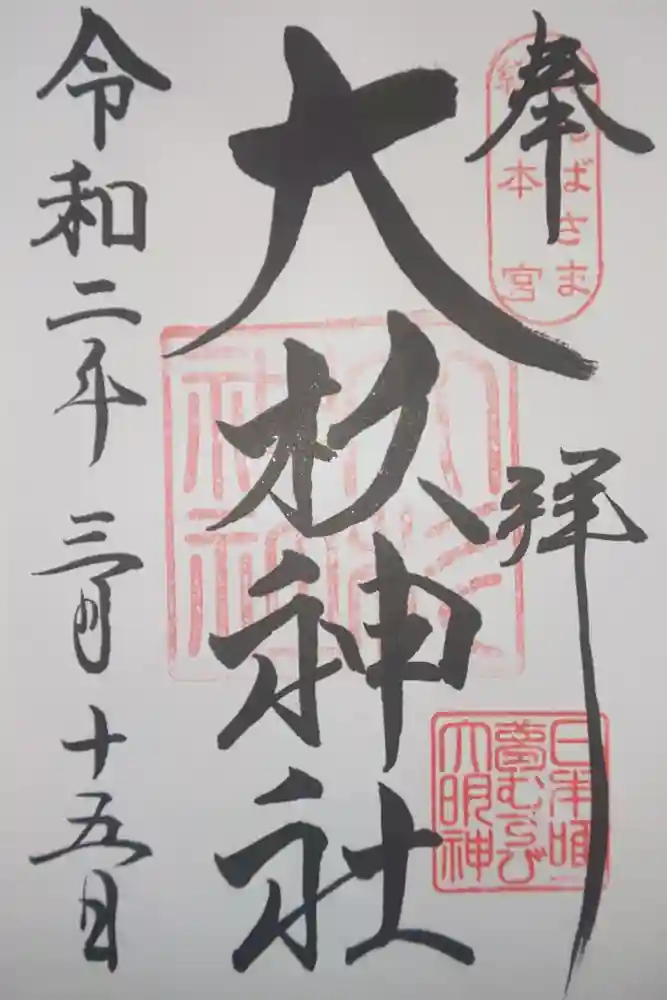 奉拝
あんばさま
総本宮
大杉神社
大杉神社
日本唯一
夢むすび
大明神
令和二年 三月 十五日